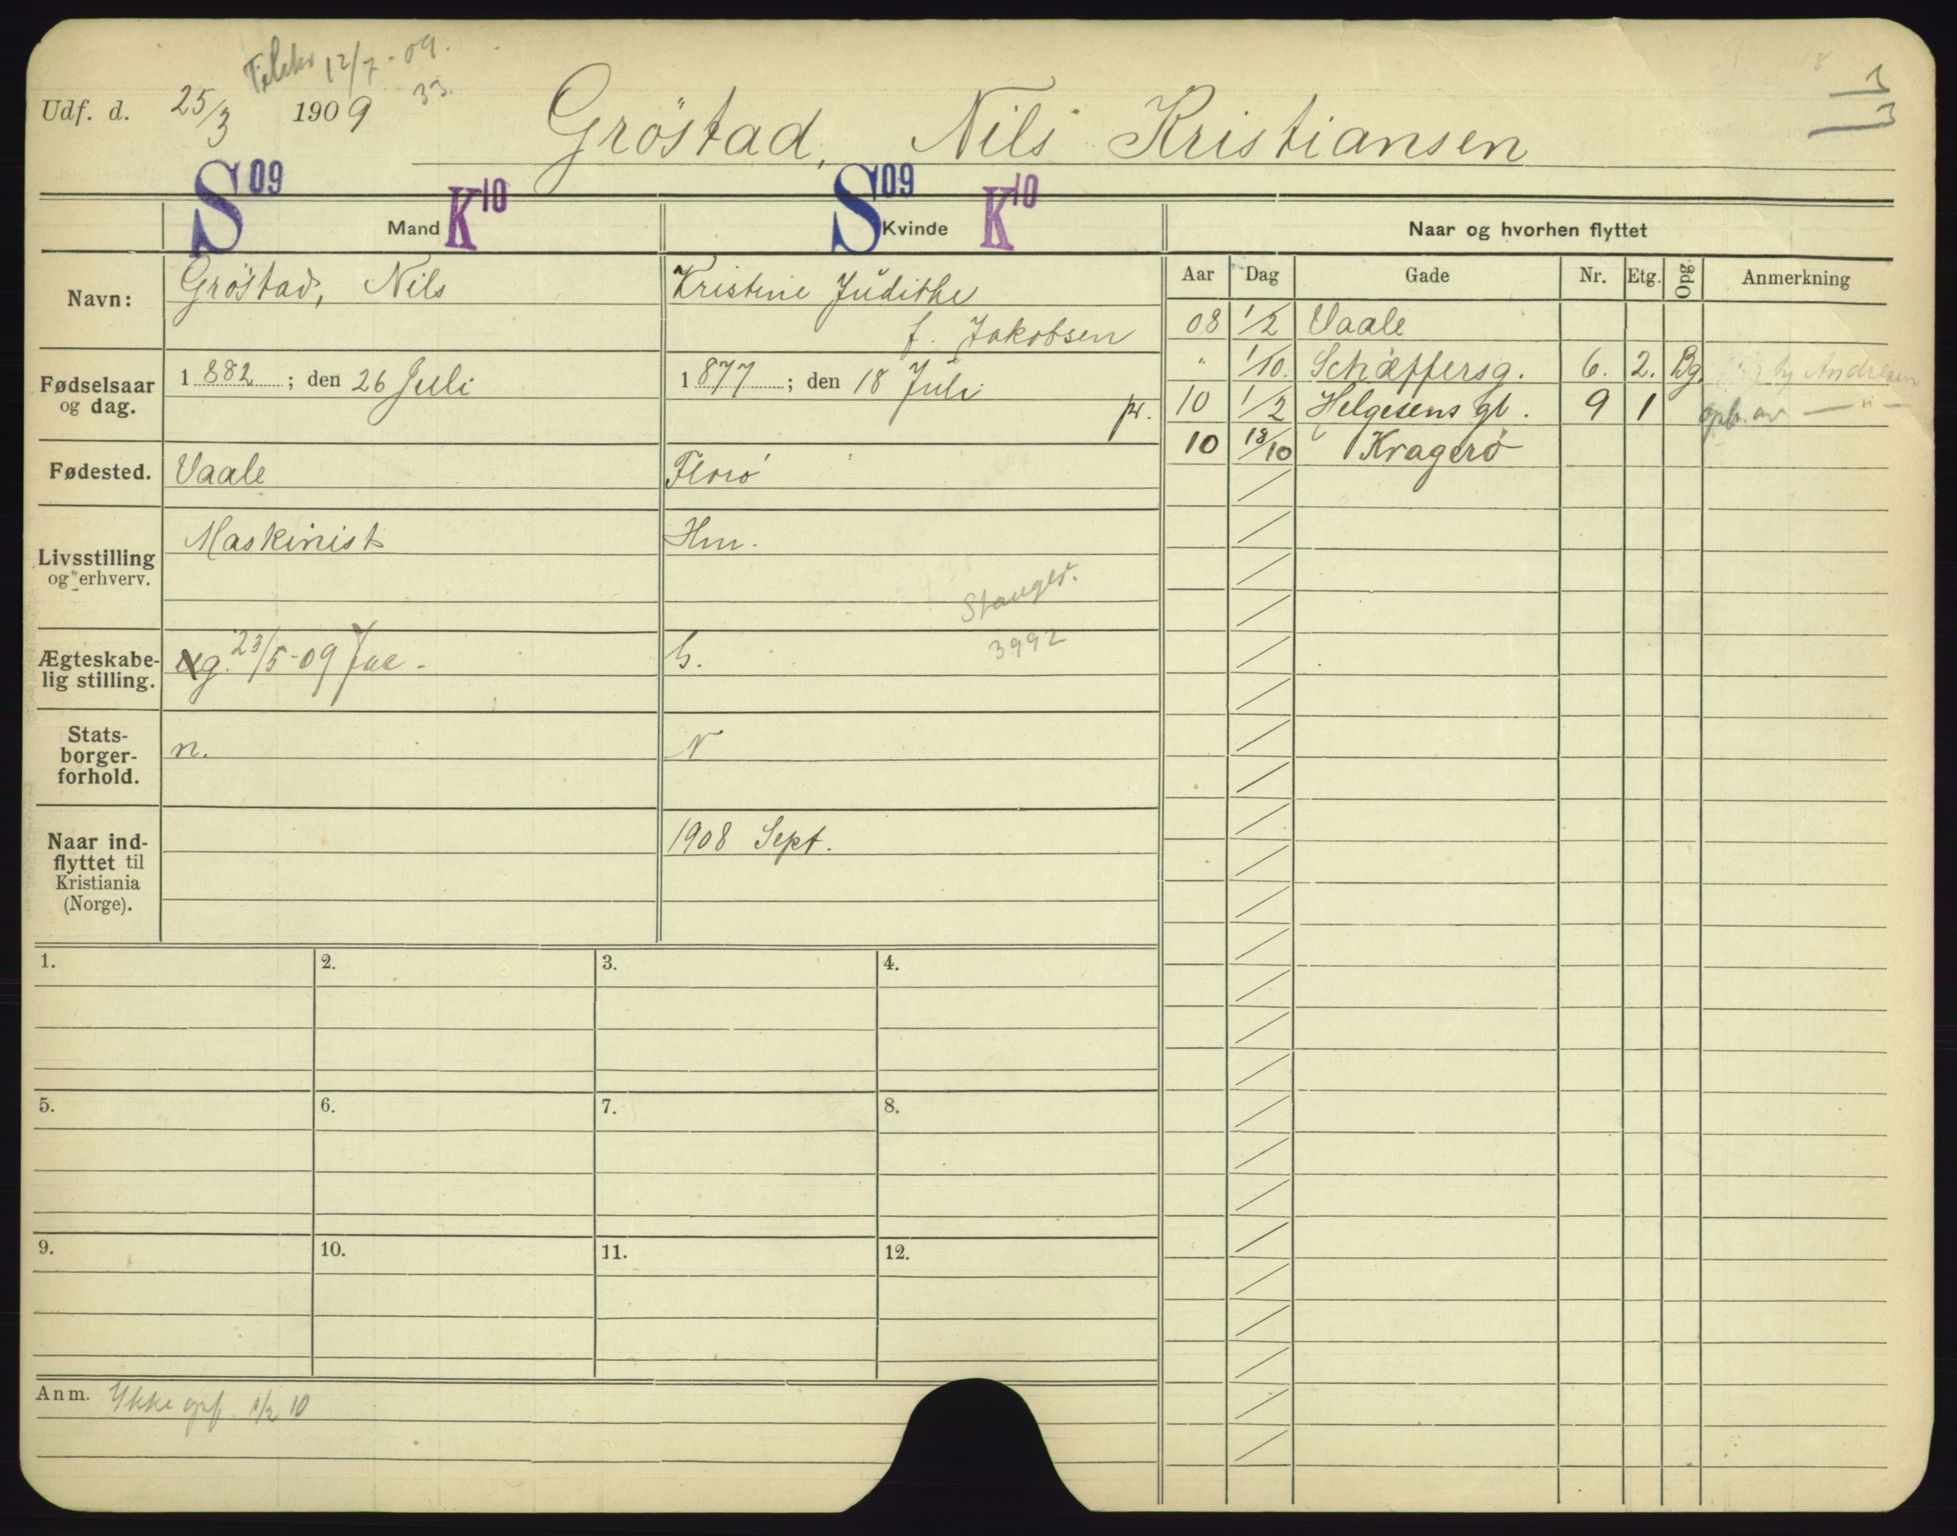 12/7 - 09.
Udf. d. 25/3 1909 33.
Gröstad, Nils Kristiansen
S 09 Mand K 10
S 09 Kvinde K 10
Naar og hvorhen flyttet
Aar Dag Gade Nr. Etg. Opg. Anmerkning
Navn: Gröstad, Nils
Kristine Judithe
f. Jakobsen
Fødselsaar og dag. 1882 ; den 26 Juli
1877 ; den 18 Juli
pr.
Fødested. Vaale
Florö
Livsstilling og erhverv. Maskinist
Hm.
3992
Ægteskabelig stilling. g. 23/5-09 Jac -
G.
Statsborgerforhold. n.
N
Naar indflyttet til Kristiania (Norge).
1908 Sept.
08 1/2 Vaale
" 1/10. Schæffersg. 6. 2. Bg. Andresen
10 1/2 Helgesens gt. 9 1 opb. av — " —
10 18/10 Kragerö
1. 2. 3. 4.
5. 6. 7. 8.
9. 10. 11. 12.
Anm. Ikke opf. 1/2 10